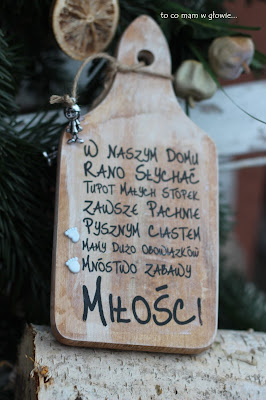 to co mam w głowie...
W NASZYM DOMU
RANO SŁYCHAĆ
TUPOT MAŁYCH STÓPEK
ZAWSZE PACHNIE
PYSZNYM CIASTEM
MAMY DUŻO OBOWIĄZKÓW
MNÓSTWO ZABAWY
MIŁOŚCI